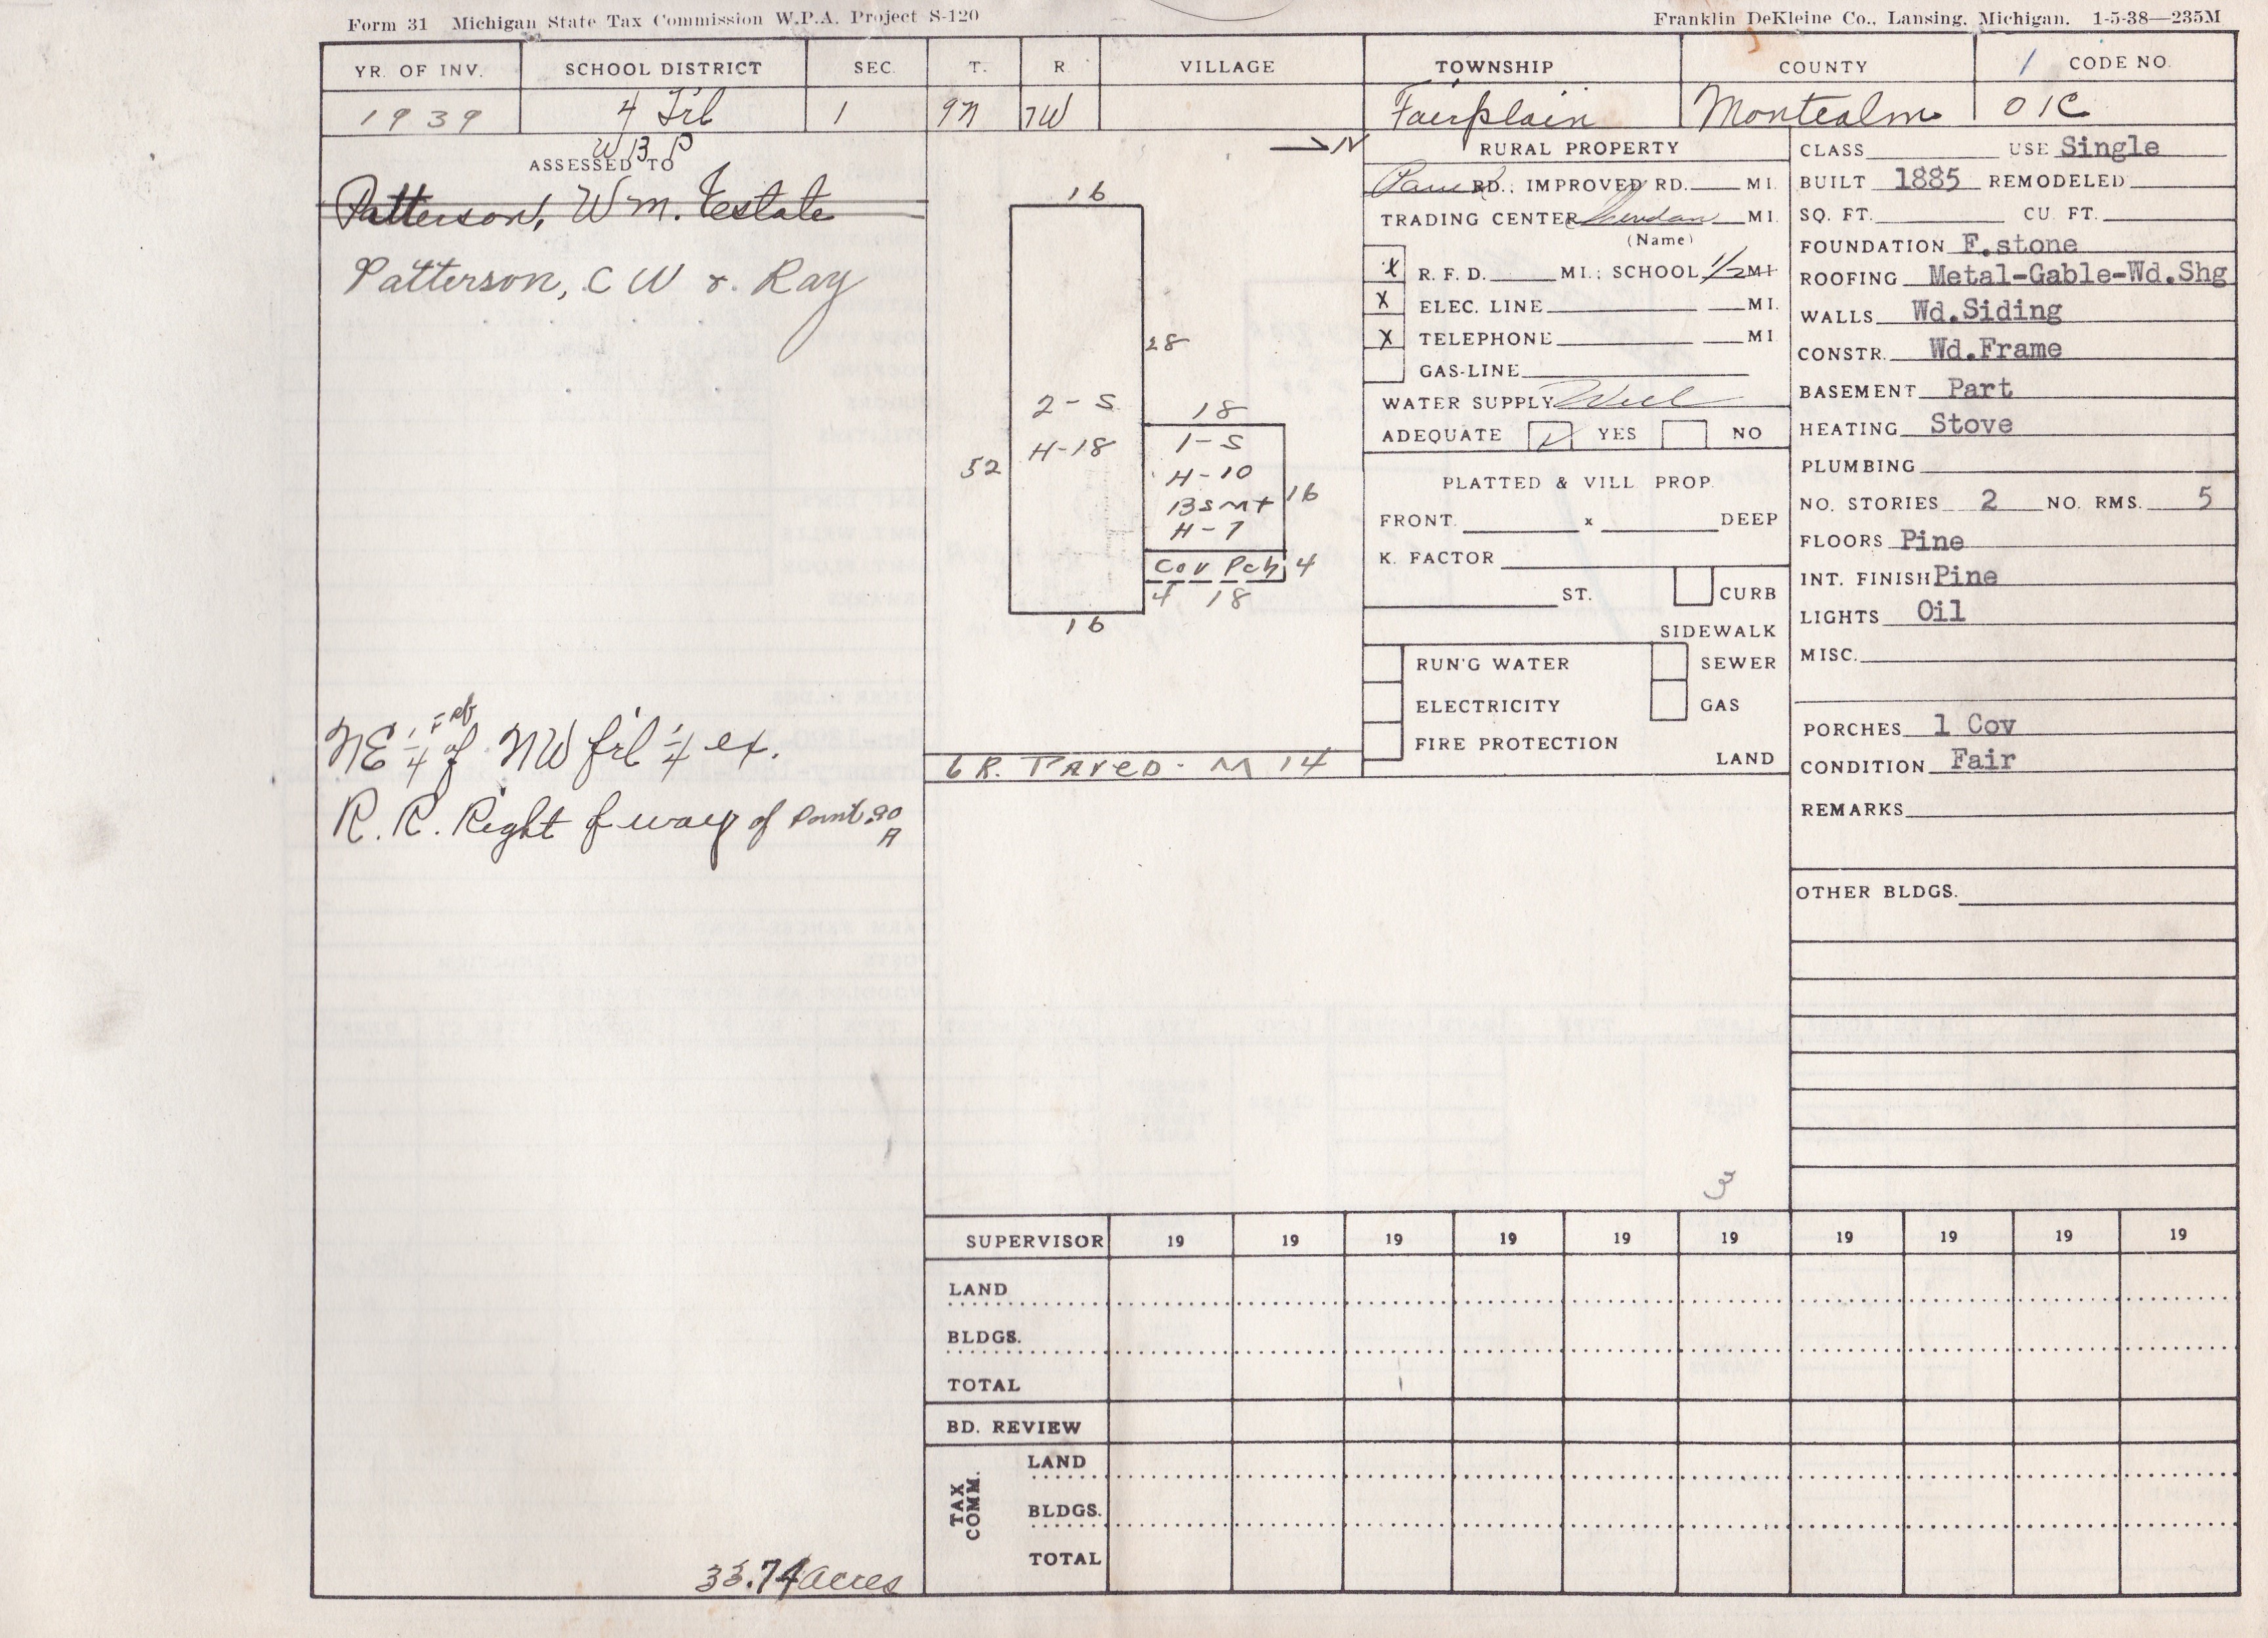 Form 31 Michigan State Tax Commission W.P.A. Project S-120
Franklin DeKleine Co., Lansing, Michigan. 1-5-38—235M
YR. OF INV. SCHOOL DISTRICT SEC. T. R. VILLAGE TOWNSHIP COUNTY / CODE NO.
1939 4 Frl 1 9N 7W Fairplain Montcalm 01C
W B P
ASSESSED TO
Patterson, Wm. Estate
Patterson, C W & Ray
NE 1/4 of NW frl 1/4 ex.
R. R. Right of way of
A
33.74 acres
N
16
28
2-S
H-18
52
18
1-S
H-10
Bsmt
H-7
16
Cov Pch 4
4 18
16
6 R. Paved - M 14
RURAL PROPERTY
RD.; IMPROVED RD. MI.
TRADING CENTER Sheridan MI.
(Name)
X R. F. D. MI.; SCHOOL 1/2 MI.
X ELEC. LINE MI.
X TELEPHONE MI.
GAS-LINE
WATER SUPPLY Well
ADEQUATE YES NO
PLATTED & VILL PROP.
FRONT. x DEEP
K. FACTOR
ST. CURB
SIDEWALK
RUN'G WATER SEWER
ELECTRICITY GAS
FIRE PROTECTION
LAND
CLASS USE Single
BUILT 1885 REMODELED
SQ. FT. CU. FT.
FOUNDATION F.stone
ROOFING Metal-Gable-Wd.Shg
WALLS Wd.Siding
CONSTR. Wd.Frame
BASEMENT Part
HEATING Stove
PLUMBING
NO. STORIES 2 NO. RMS. 5
FLOORS Pine
INT. FINISH Pine
LIGHTS Oil
MISC.
PORCHES 1 Cov
CONDITION Fair
REMARKS
OTHER BLDGS.
3
SUPERVISOR 19 19 19 19 19 19 19 19 19 19
LAND
BLDGS.
TOTAL
BD. REVIEW
TAX COMM.
LAND
BLDGS.
TOTAL